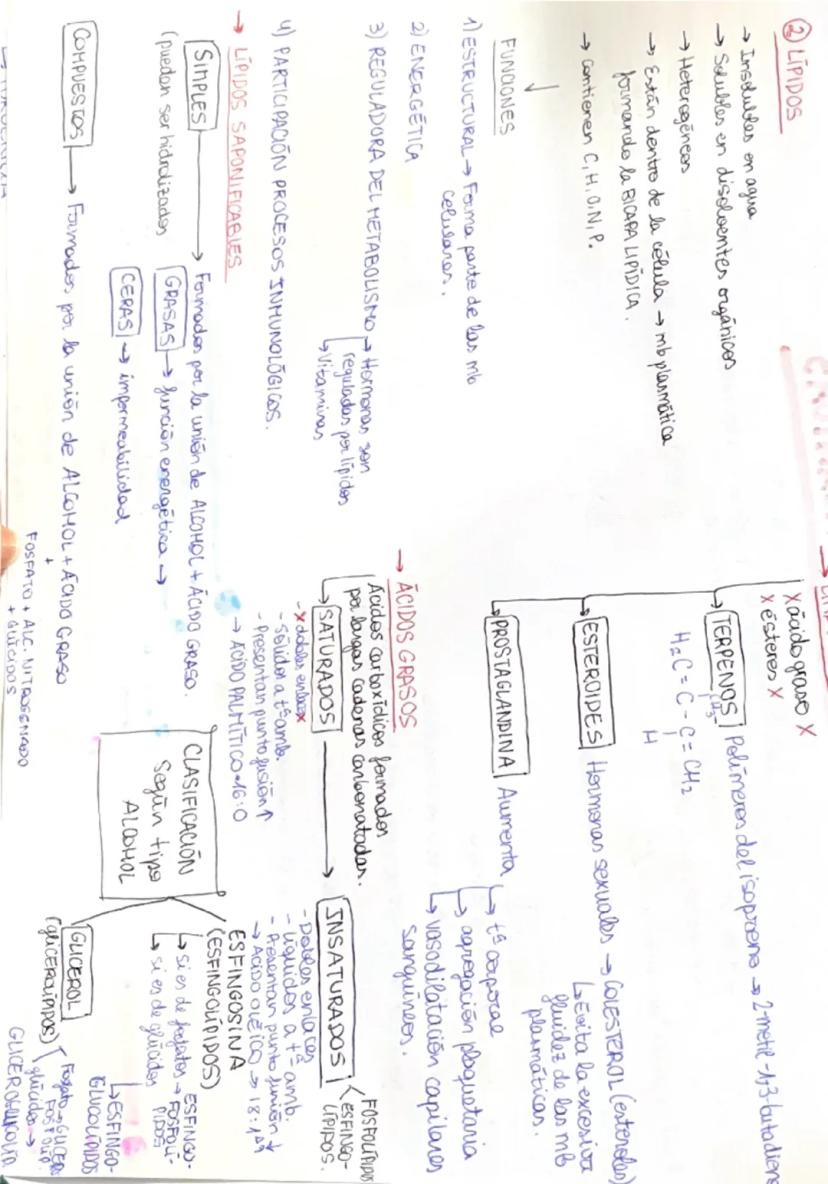 ② LÍPIDOS
→ Insolubles en agua
→ Solubles en disolventes orgánicos
→ Heterogéneos
→ Están dentro de la célula → mb plasmática
formando la BICAPA LIPÍDICA.
→ Contienen C, H, O, N, P.
FUNCIONES
1) ESTRUCTURAL → Forma parte de las mb
celulares.
2) ENERGÉTICA
3) REGULADORA DEL METABOLISMO → Hormonas son
reguladas por lípidos
→ Vitaminas
4) PARTICIPACIÓN PROCESOS INMUNOLÓGICOS.
→ LÍPIDOS SAPONIFICABLES
SIMPLES → Formados por la unión de ALCOHOL + ÁCIDO GRASO.
(pueden ser hidrolizados
GRASAS → función energética →
CERAS → impermeabilidad
COMPUESTOS → Formados por la unión de ALCOHOL + ÁCIDO GRASO
+
FOSFATO + ALC. NITROGENADO
+ GLÚCIDOS
X ácido graso X
X ésteres X
TERPENOS Polímeros del isopreno → 2-metil-1,3-butadieno
CH3
H2C = C - C = CH2
H
ESTEROIDES Hormonas sexuales → COLESTEROL (esteroles)
↳ Evita la excesiva
fluidez de las mb
plasmáticas.
PROSTAGLANDINA Aumenta
↳ tª corporal
↳ agregación plaquetaria
↳ vasodilatación capilares
sanguíneos.
→ ÁCIDOS GRASOS
Ácidos carboxídicos formados
por largas cadenas carbonatadas.
SATURADOS → INSATURADOS
- X dobles enlaces X
- Sólidos a tª amb.
- Presentan punto fusión ↑
→ ÁCIDO PALMÍTICO → 16:0
FOSFOLÍPIDOS
ESFINGO-
LÍPIDOS.
- Dobles enlaces
- Líquidos a tª amb.
- Presentan punto fusión ↓
→ Ácido oléico → 18:1Δ9
CLASIFICACIÓN
según tipo
ALCOHOL
ESFINGOSINA
(ESFINGOLÍPIDOS)
↳ si es de fosfatos → ESFINGO-
FOSFOLÍ-
PIDOS
↳ si es de glúcidos
↳ ESFINGO-
GLUCOLÍPIDOS
GLICEROL
(glicerolípidos)
Fosfato → GLICER
FOSFOLÍP.
glúcidos →